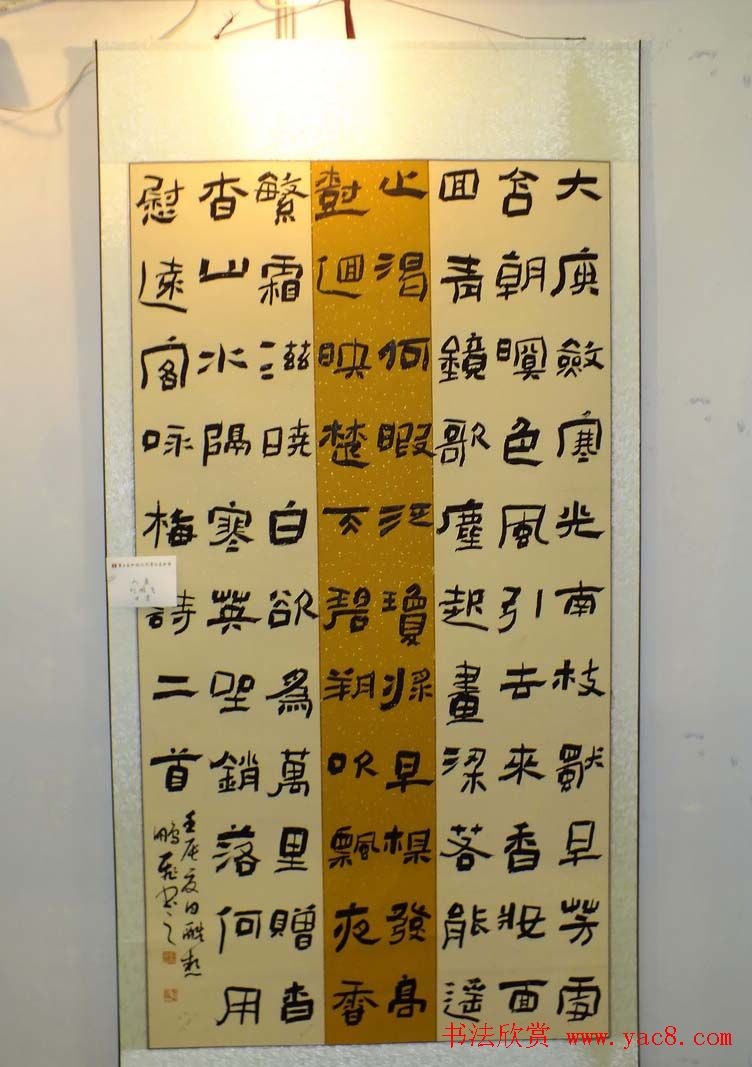 大庾斂寒光南枝獨早芳雪
含朝暝色風引去來香妝面
回青鏡歌塵起畫梁若能遥
止渴何暇泛瓊漿早梅發高
樹迥映楚天碧朔吹飄夜香
繁霜滋曉白欲爲萬里贈杳
杳山水隔寒英坐銷落何用
慰遠客咏梅詩二首
壬辰夏日酷熱
鵬飛書之
书法欣赏 www.yac8.com